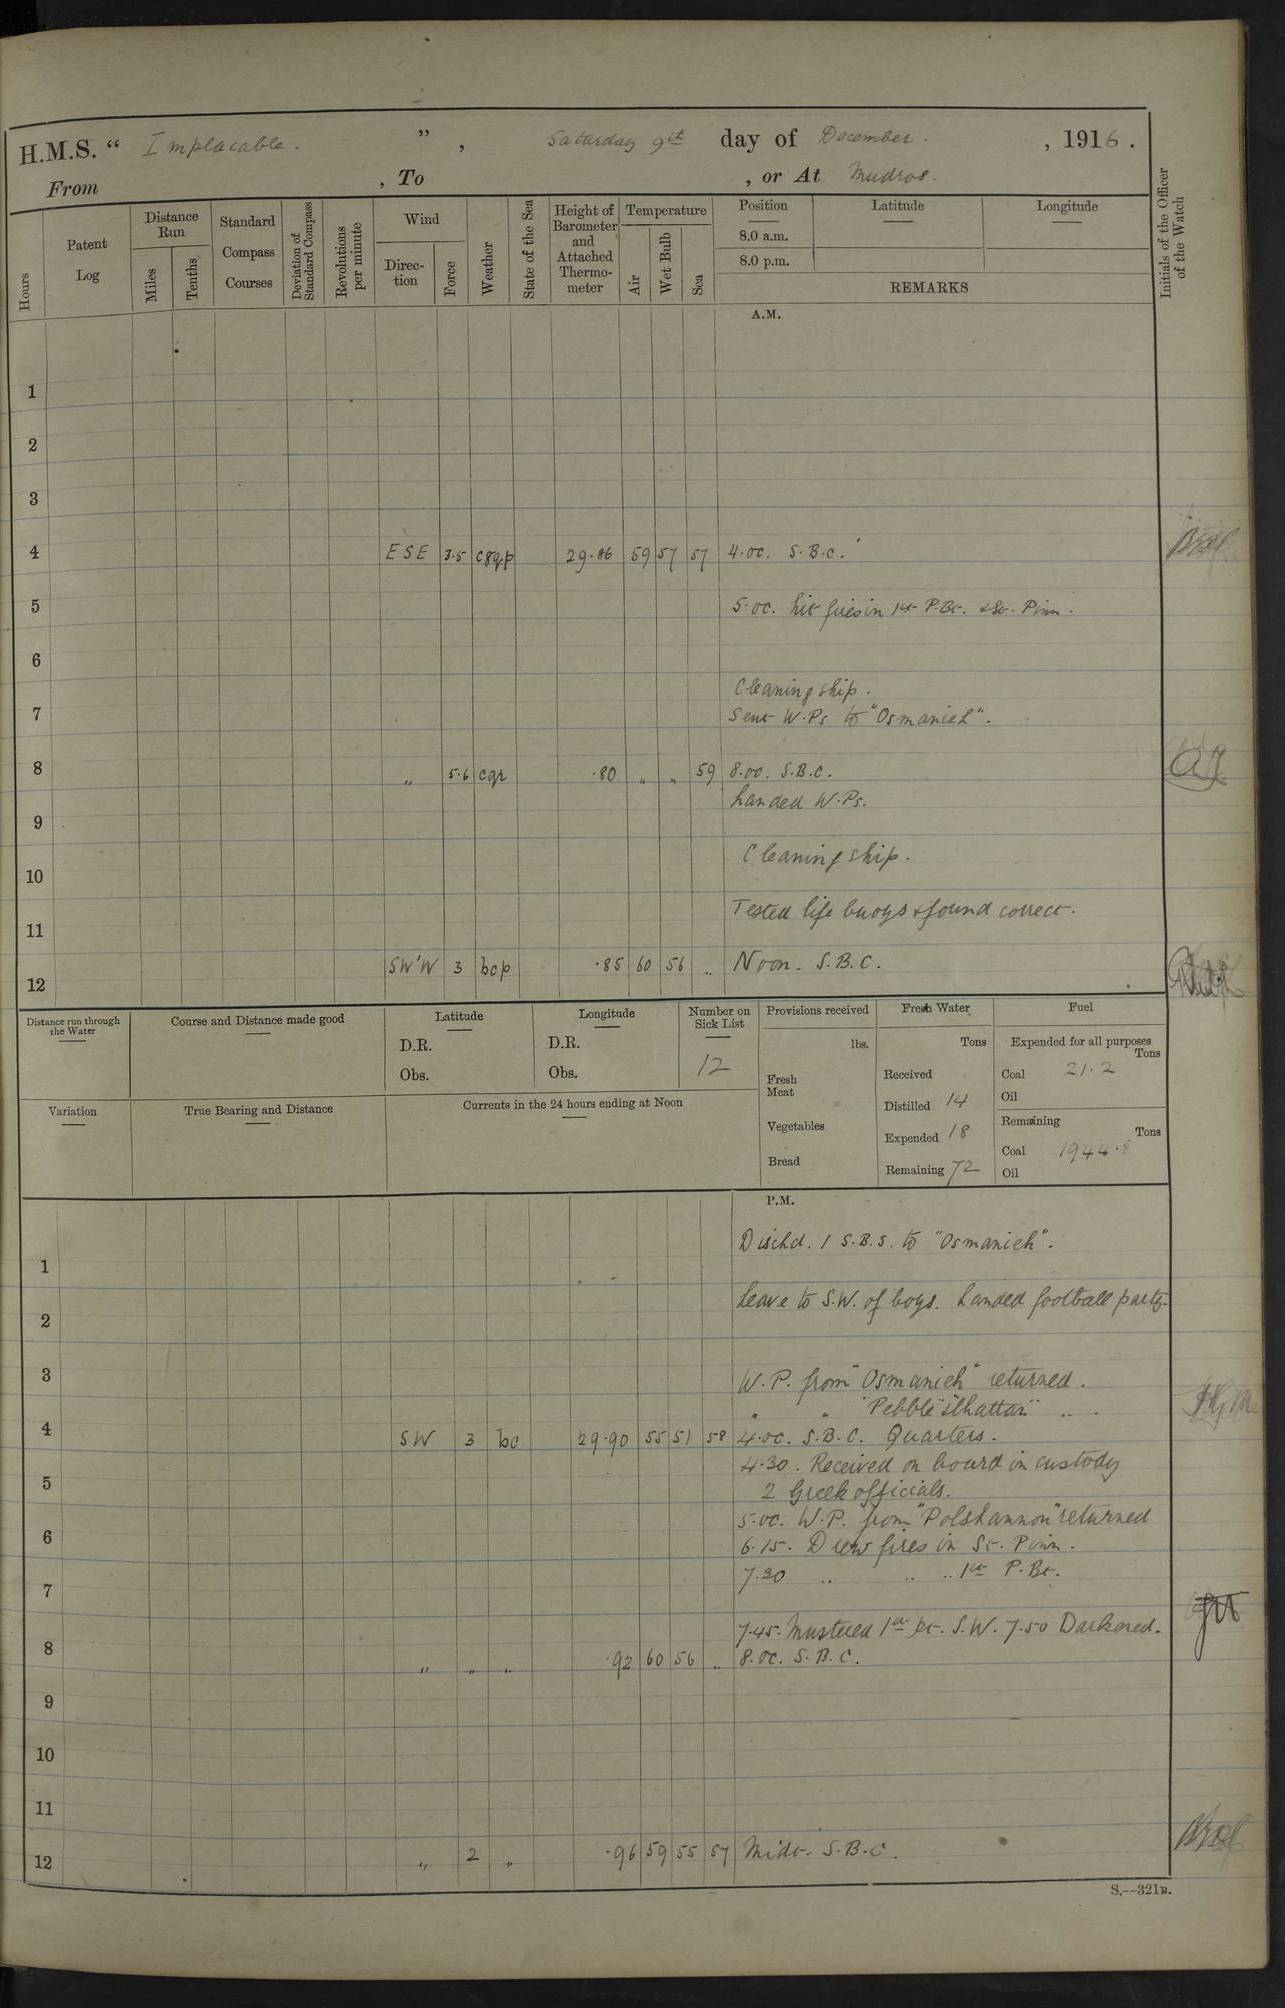 H.M.S. “ Implacable. ” , Saturday 9th day of December. , 1916.
From , To , or At Mudros.
Hours
Patent Log
Distance Run
Miles
Tenths
Standard Compass Courses
Deviation of Standard Compass
Revolutions per minute
Wind
Direction
Force
Weather
State of the Sea
Height of Barometer and Attached Thermometer
Temperature
Air
Wet Bulb
Sea
Position
8.0 a.m.
8.0 p.m.
Latitude
Longitude
REMARKS
Initials of the Officer of the Watch
A.M.
1
2
3
4 ESE 3.5 cgqp 29.86 59 57 57 4.0c. S.B.C.
5 5.0c. Lit fires in 1st P.Bt. & St. Pinn.
6
Cleaning ship.
7 Sent W.Ps to "Osmanieh".
8 „ 5.6 cqr .80 „ „ 59 8.0c. S.B.C.
Landed W.Ps.
9
Cleaning ship.
10
Tested life buoys & found correct.
11
12 SW'W 3 bcp .85 60 56 „ Noon. S.B.C.
Distance run through the Water
Course and Distance made good
Latitude
D.R.
Obs.
Longitude
D.R.
Obs.
Number on Sick List
12
Provisions received
lbs.
Fresh Meat
Vegetables
Bread
Fresh Water
Tons
Received
Distilled 14
Expended 18
Remaining 72
Fuel
Expended for all purposes
Tons
Coal 21.2
Oil
Remaining
Tons
Coal 1944.8
Oil
Variation
True Bearing and Distance
Currents in the 24 hours ending at Noon
P.M.
Dischd. 1 S.B.S. to "Osmanieh".
1
Leave to S.W. of boys. Landed football party.
2
3 W.P. from "Osmanieh" returned.
„ „ "Pebble" „ „ .
4 SW 3 bc 29.90 55 51 58 4.0c. S.B.C. Quarters.
4.30. Received on board in custody
5 2 Greek officials.
5.0c. W.P. from "Polshannon" returned
6 6.15. Drew fires in St. Pinn.
7.30 „ „ „ 1st P.Bt.
7
7.45. Mustered 1st pt. S.W. 7.50 Darkened.
8 „ „ „ .92 60 56 „ 8.0c. S.B.C.
9
10
11
12 „ 2 „ .96 59 55 57 Midt. S.B.C.
S.—321B.